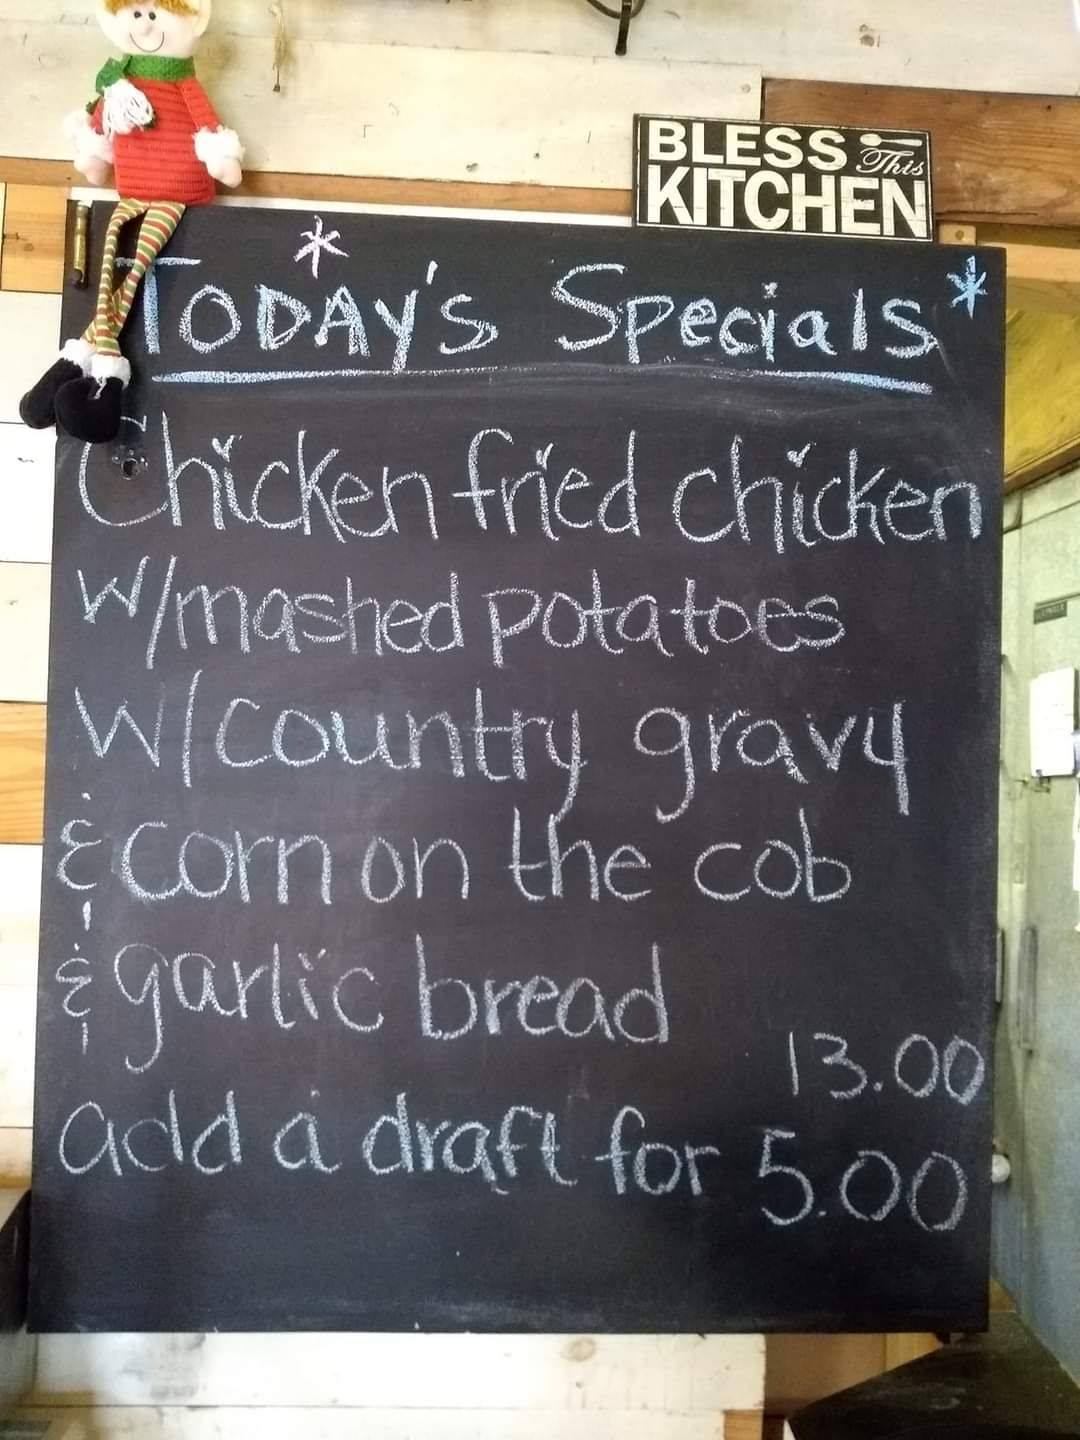 BLESS This
KITCHEN
TODAY's Specials
Chicken fried chicken
W/mashed potatoes
W/country gravy
& corn on the cob
& garlic bread
13.00
add a draft for 5.00